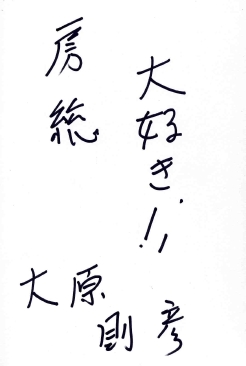 房総
大好き!!
大原
則彦